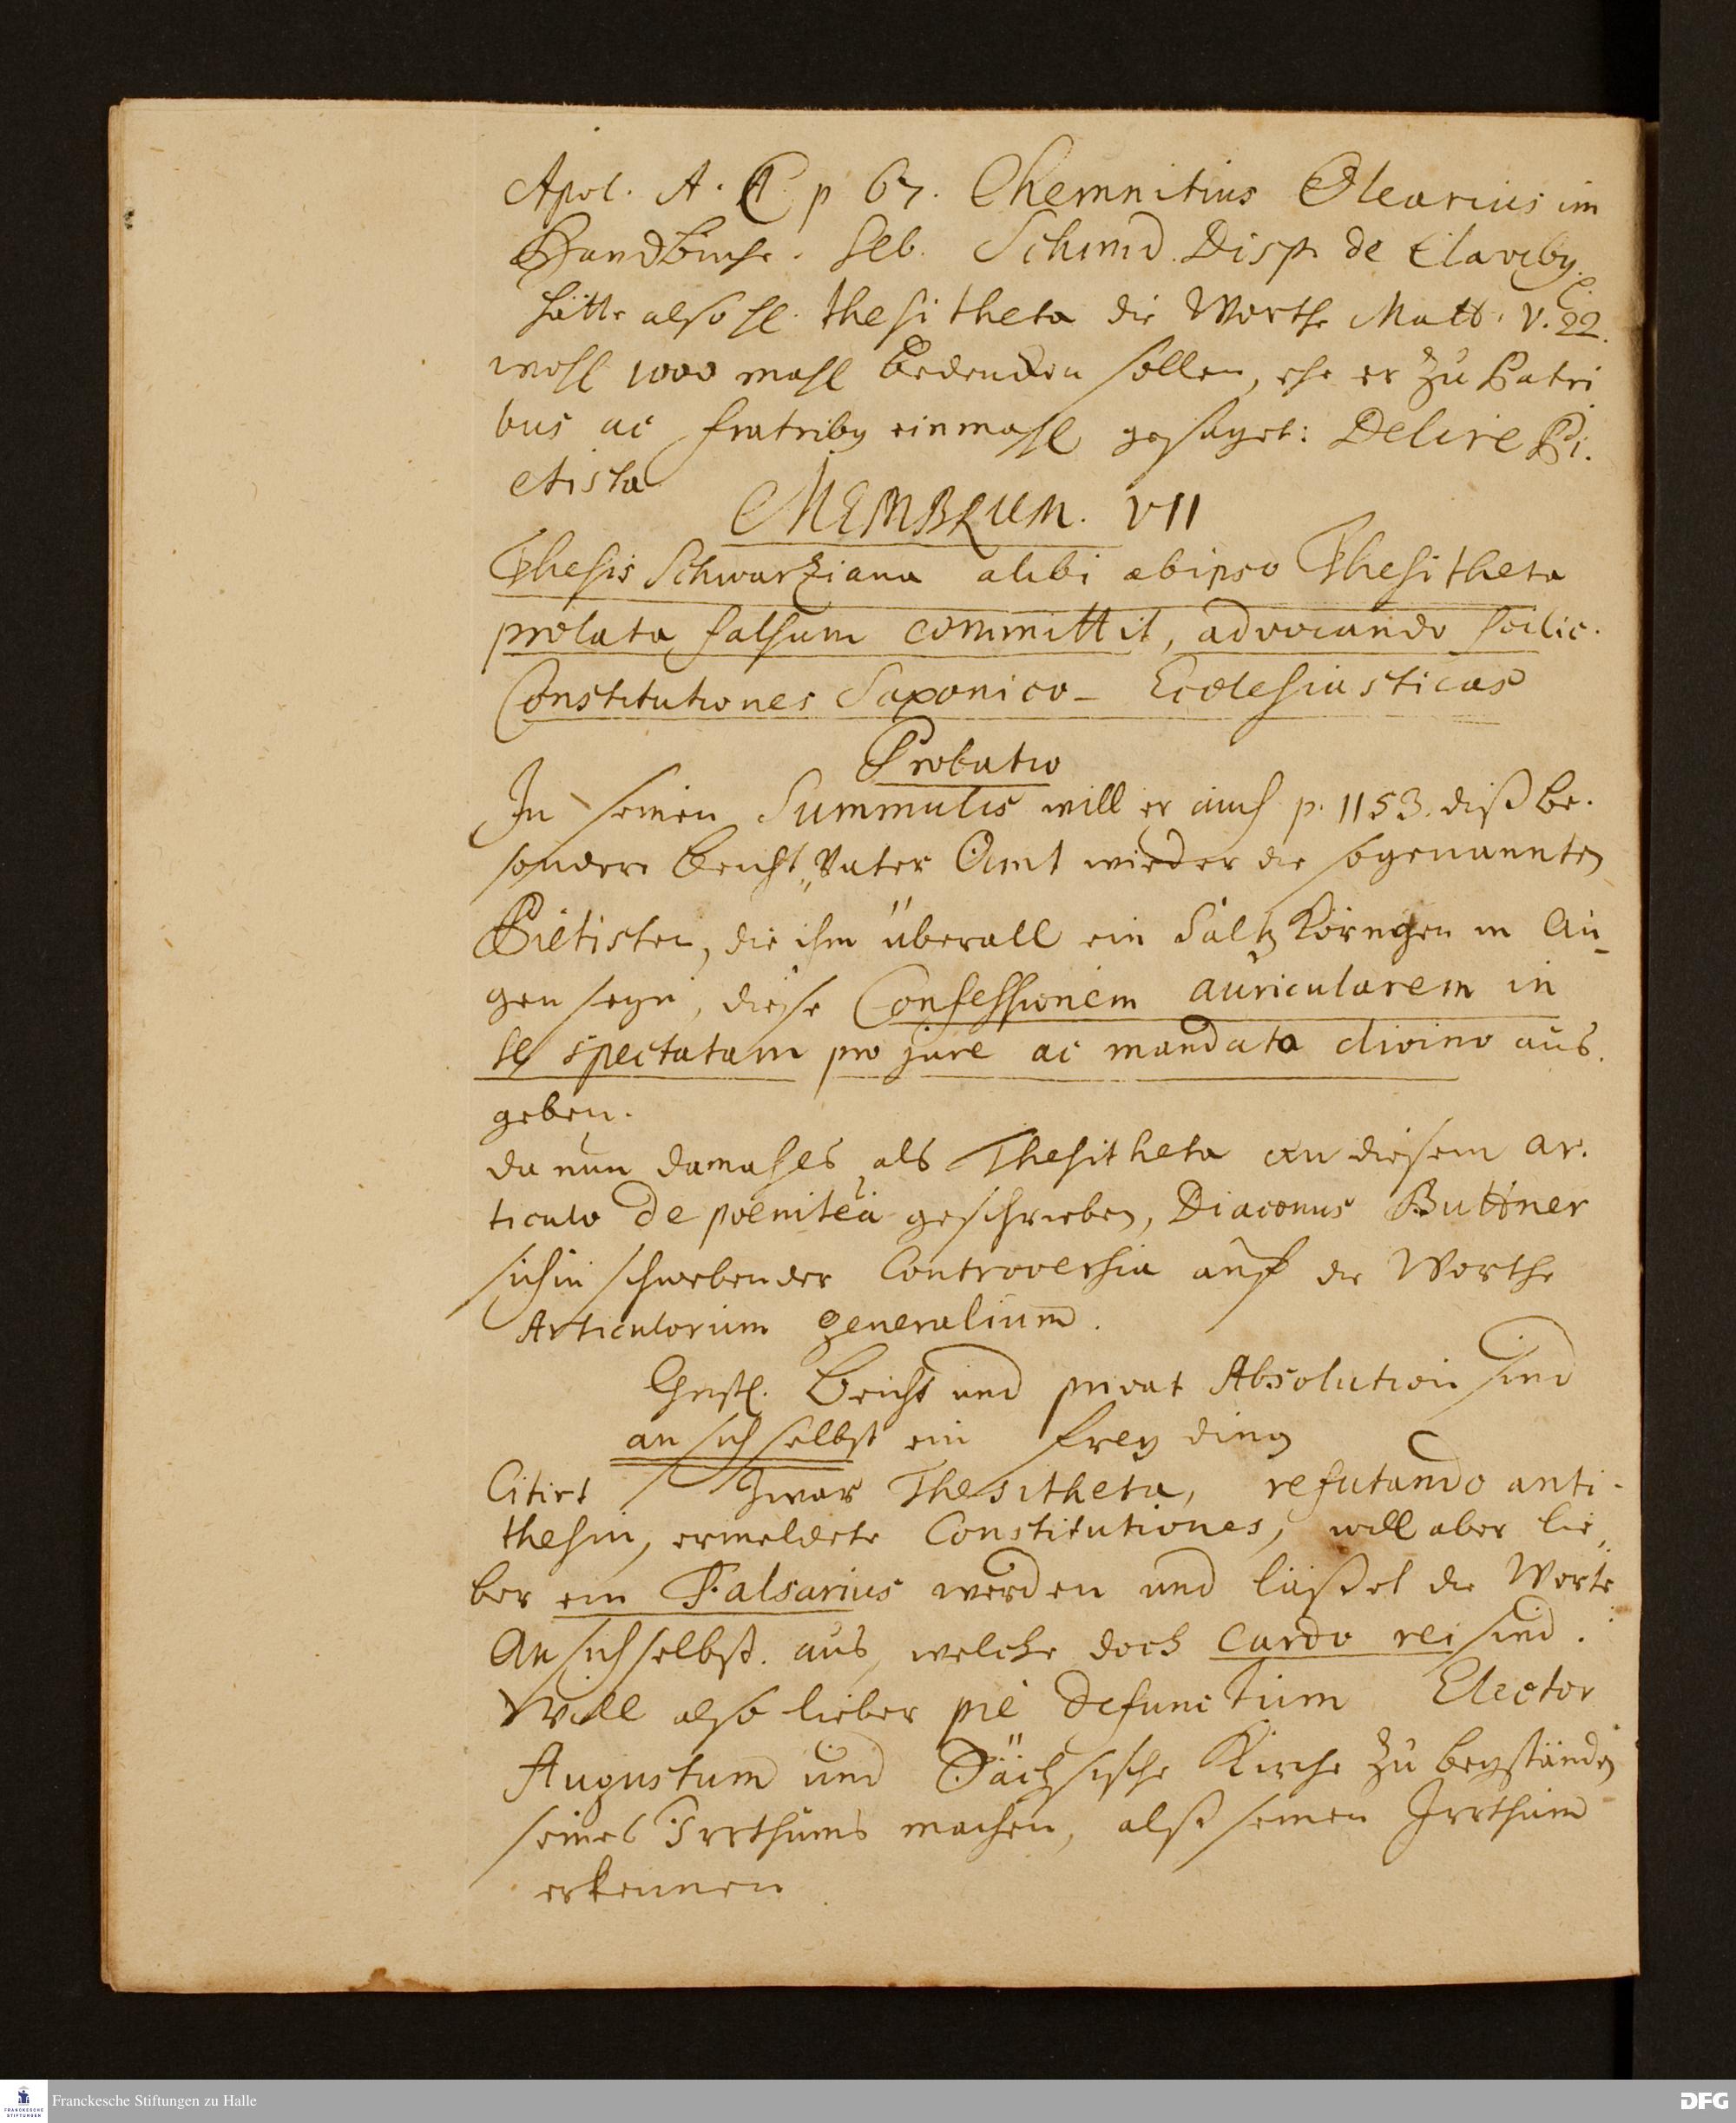 Apol. A. C p 67. Chemnitius Olearius im
Handbuche. Seb. Schmid. Disp. de Claviby.
hätte also H. thesitheta die Worthe Matt. V. 22.
wohl 1000 mahl bedencken sollen, ehe er zu Patri
bus ac fratriby einmahl gesaget: Delire Pi.
etista
MEMBRUM. VII
Thesis Schwarziana alibi ab ipso Thesitheta
prolata falsum committit, advocando scilic.
Constitutiones Saxonico-Ecclesiasticas
Probatio
In seinen Summulis will er auch p. 1153. diß be.
sondere Beicht„Vater Amt wieder die sogenannten
Pietisten, die ihm überall ein Saltz Körngen in Au-
gen seyn, diese Confessionem auricularem in
se spectatam pro jure ac mandato divino aus.
geben.
da nun damahls als Thesitheta an diesem ar.
ticulo de poenitea geschrieben, Diaconus Buttner
sich in schwebender Controversia auf die Worthe
Articulorum generalium.
Beicht und privat Absolution sind
an sich selbst ein frey ding
Citirt zwar Thesitheta, refutando anti-
thesin, ermeldete Constitutiones, will aber lie„
ber ein Falsarius werden und läßet die Worte
An sich selbst. aus, welche doch cardo rei sind.
Will also lieber pie defunctum Elector
Augustum und Sächsische Kirche zu beyständen
seines Irrthums machen, alß seinen Irrthum
erkennen
Franckesche Stiftungen zu Halle
FRANCKESCHE
STIFTUNGEN
DFG